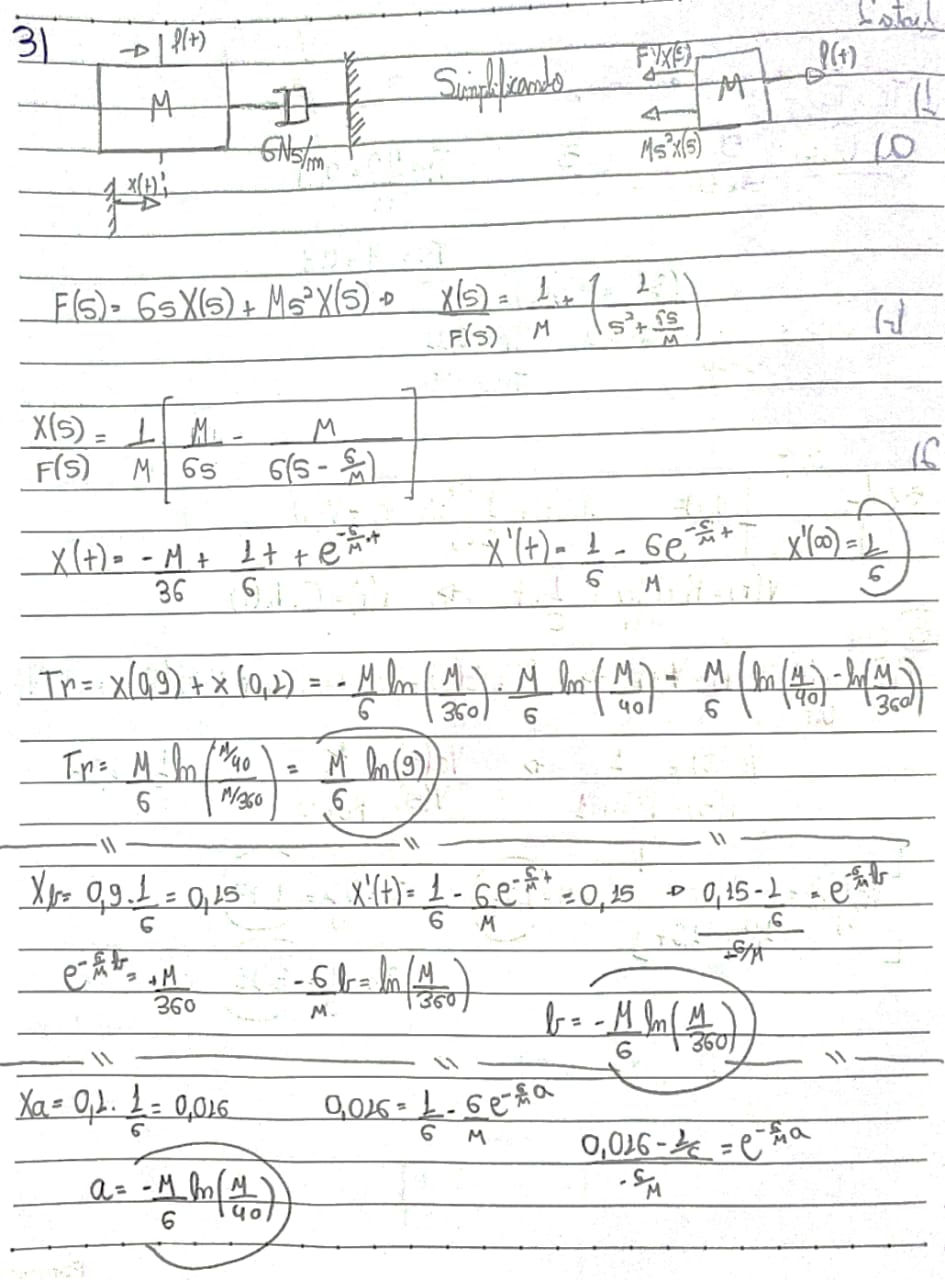 3)
→ f(t)
M
6Ns/m
x(t)
Simplificando
FVX(s)
Ms²X(s)
M
f(t)
F(s) = 6sX(s) + Ms²X(s) → X(s)/F(s) = 1/M + (1/(s² + 6s/M))
X(s)/F(s) = 1/M [M/6s - M/6(s - 6/M)]
X(t) = -M/36 + 1/6 t + e^(-6/M t) X'(t) = 1/6 - 6/M e^(-6/M t) X'(∞) = 1/6
Tr = x(0,9) + x(0,1) = -M/6 ln(M/360) . M/6 ln(M/40) = M/6 (ln(M/40) - ln(M/360))
Tr = M/6 ln((M/40)/(M/360)) = M/6 ln(9)
Xb = 0,9 . 1/6 = 0,15 X'(t) = 1/6 - 6/M e^(-6/M t) = 0,15 → (0,15 - 1/6)/(-6/M) = e^(-6/M b)
e^(-6/M b) = +M/360 -6/M b = ln(M/360)
b = -M/6 ln(M/360)
Xa = 0,1 . 1/6 = 0,016 0,016 = 1/6 - 6/M e^(-6/M a)
(0,016 - 1/6)/(-6/M) = e^(-6/M a)
a = -M/6 ln(M/40)